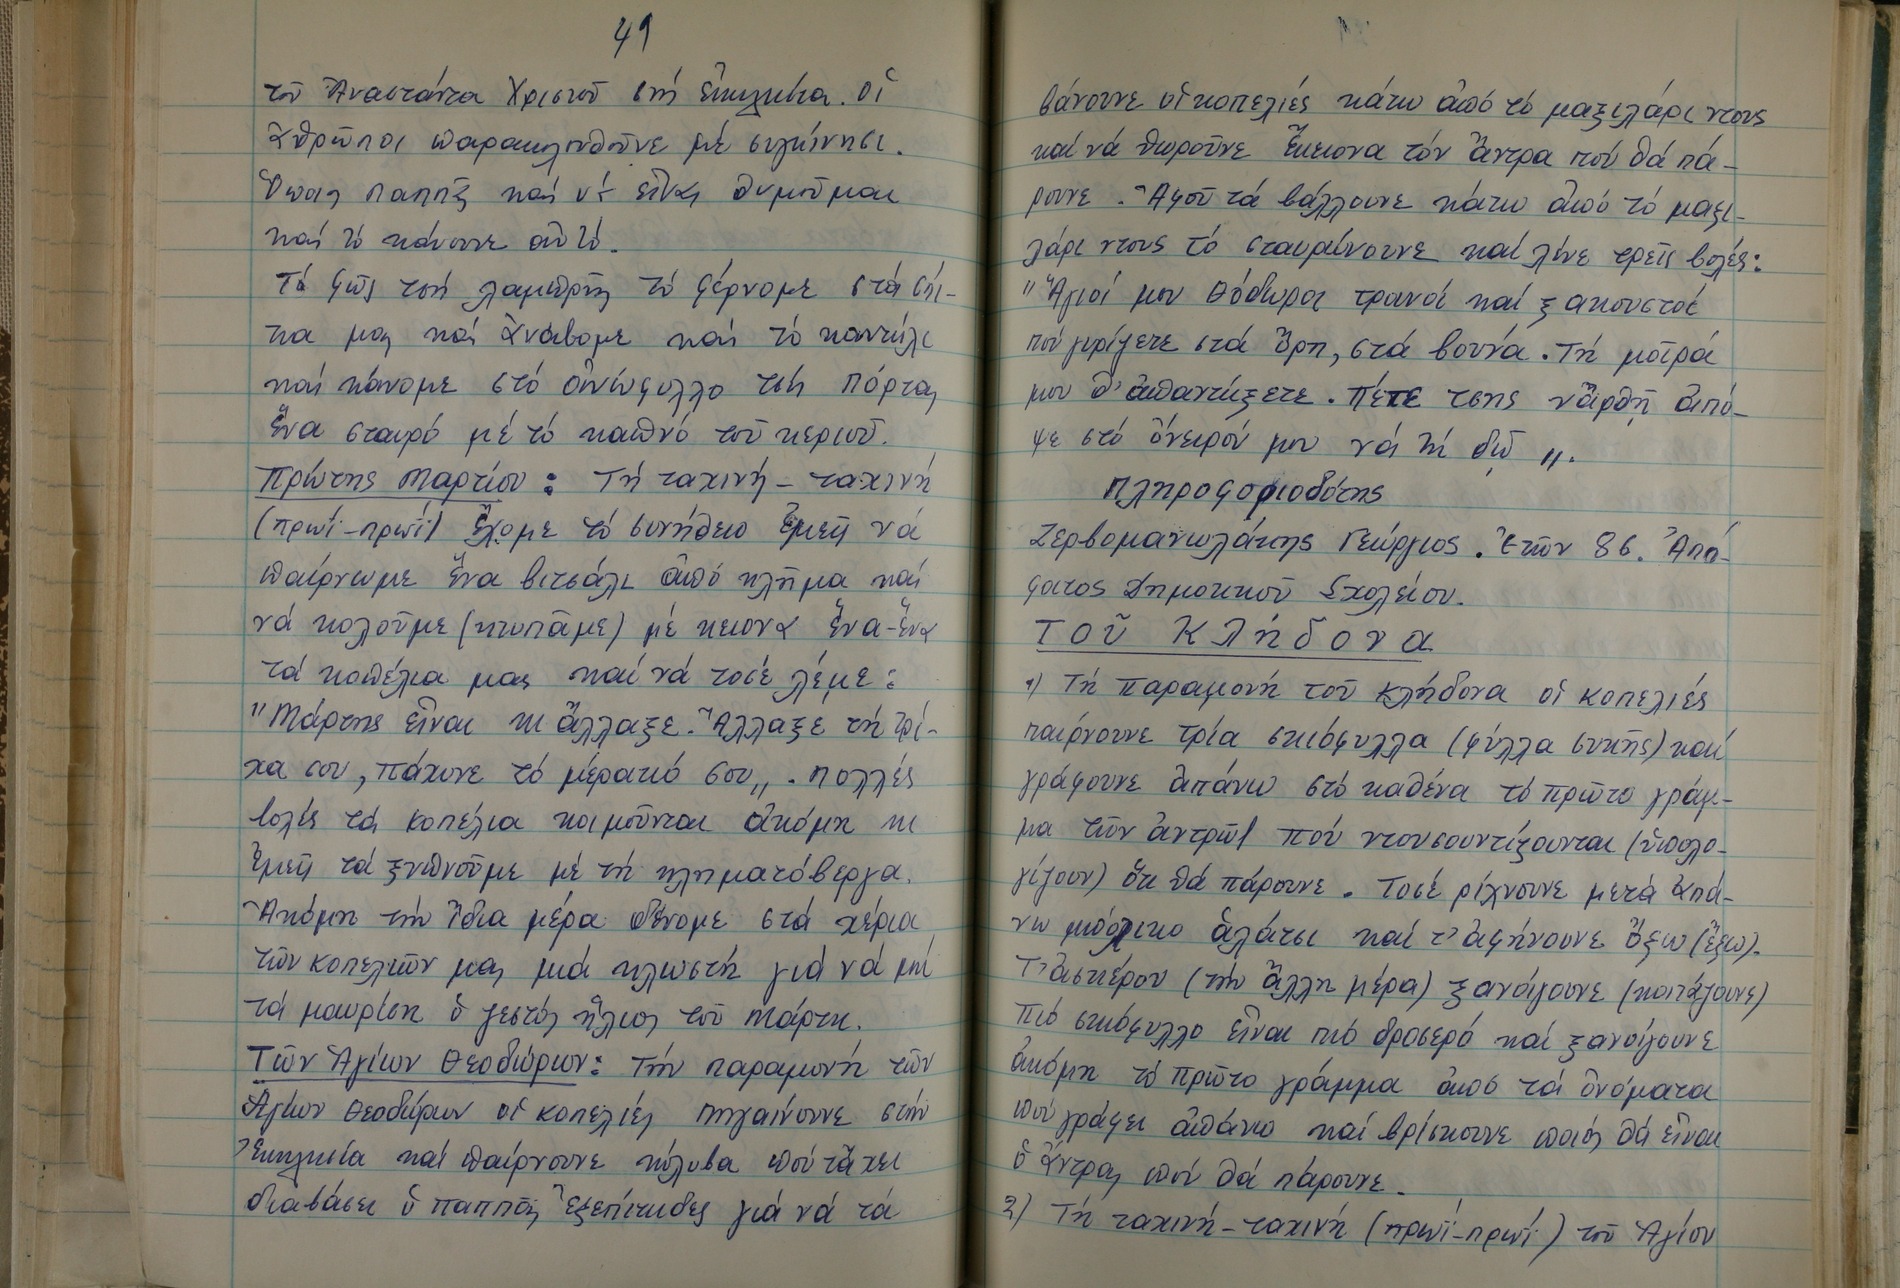 49
τοῦ Ἀναστάντα Χριστοῦ στή ἐκκλησία. οἱ
ἀθρῶποι παρακολουθοῦνε μέ συγκίνησι.
παππᾶς καί νά εἶναι θυμοῦμαι
καί τό κάνουνε αὐτό.
Τό φῶς τσῆ λαμπρῆς τό φέρνομε στά σπί-
τια μας καί ἀνάβομε καί τό καντήλι
καί κάνομε στό ἀνώφυλλο τσῆ πόρτας
ἕνα σταυρό μέ τό καπνό τοῦ κεριοῦ.
Πρώτης Μαρτίου: Τή ταχινή - ταχινή
(πρωί-πρωί) ἔχομε τό συνήθειο ἐμεῖς νά
παίρνωμε ἕνα βιτσάλι ἀπό κλῆμα καί
νά κολοῦμε (κτυπᾶμε) μέ κειονα ἕνα-ἕνα
τά κοπέλια μας καί νά τοσέ λέμε:
"Μάρτης εἶναι κι ἄλλαξε. Ἄλλαξε τή τρί-
χα σου, πάχυνε τό μέρατιό σου". πολλές
βολές τά κοπέλια κοιμοῦνται ἀκόμη κι
ἐμεῖς τά ξυπνοῦμε μέ τή κληματόβεργα.
Ἀκόμη τήν ἴδια μέρα δένομε στά χέρια
τῶν κοπελιῶν μας μιά κλωστή γιά νά μή
τά μαυρίση ὁ ζεστός ἥλιος τοῦ Μάρτη.
Τῶν Ἁγίων Θεοδώρων: Τήν παραμονή τῶν
Ἁγίων Θεοδώρων οἱ κοπελιές πηγαίνουνε στήν
Ἐκκλησία καί παίρνουνε κόλυβα πού τἄχει
διαβάσει ὁ παππᾶς ἐξεπίτηδες γιά νά τά
βάνουνε οἱ κοπελιές κάτω ἀπό τό μαξιλάρι ντους
καί νά θωροῦνε ἔκειονα τόν ἄντρα πού θά πά-
ρουνε. Ἀφοῦ τά βάλλουνε κάτω ἀπό τό μαξι-
λάρι ντους τό σταυρώνουνε καί λένε τρεῖς βολές:
"Ἅγιοί μου Θόδωροι τρανοί καί ξακουστοί
πού γυρίζετε στά ὄρη, στά βουνά. Τή μοῖρά
μου θ' ἀπαντήξετε. Πέτε τσης νἄρθῆ ἀπό-
ψε στό ὄνειρόν μου νά τή δῶ".
Πληροφοριοδότης
Ζερβομανωλάκης Γεώργιος. Ἐτῶν 86. Ἀπό-
φοιτος Δημοτικοῦ Σχολείου.
ΤΟῦ Κλήδονα
1) Τή παραμονή τοῦ Κλήδονα οἱ κοπελιές
παίρνουνε τρία σκιόφυλλα (φύλλα συκῆς) καί
γράφουνε ἀπάνω στό καθένα τό πρῶτο γράμ-
μα τῶν ἀντρῶ πού ντουσουντίζουνται (ὑπολο-
γίζουν) ὅτι θά πάρουνε. Τοσέ ρίχνουνε μετά ἀπά-
νω μπόλικο ἁλάτσι καί τ' ἀφήνουνε ὄξω (ἔξω).
Τ' ἀσπέρου (τήν ἄλλη μέρα) ξανοίγουνε (κοιτάζουνε)
πιό σκιόφυλλο εἶναι πιό δροσερό καί ξανοίγουνε
ἀκόμη τό πρῶτο γράμμα ἀπό τά ὀνόματα
πού γράφει ἀπάνω καί βρίσκουνε ποιός θά εἶναι
ὁ ἄντρας πού θά πάρουνε.
2) Τή ταχινή-ταχινή (πρωί-πρωί) τοῦ Ἁγίου